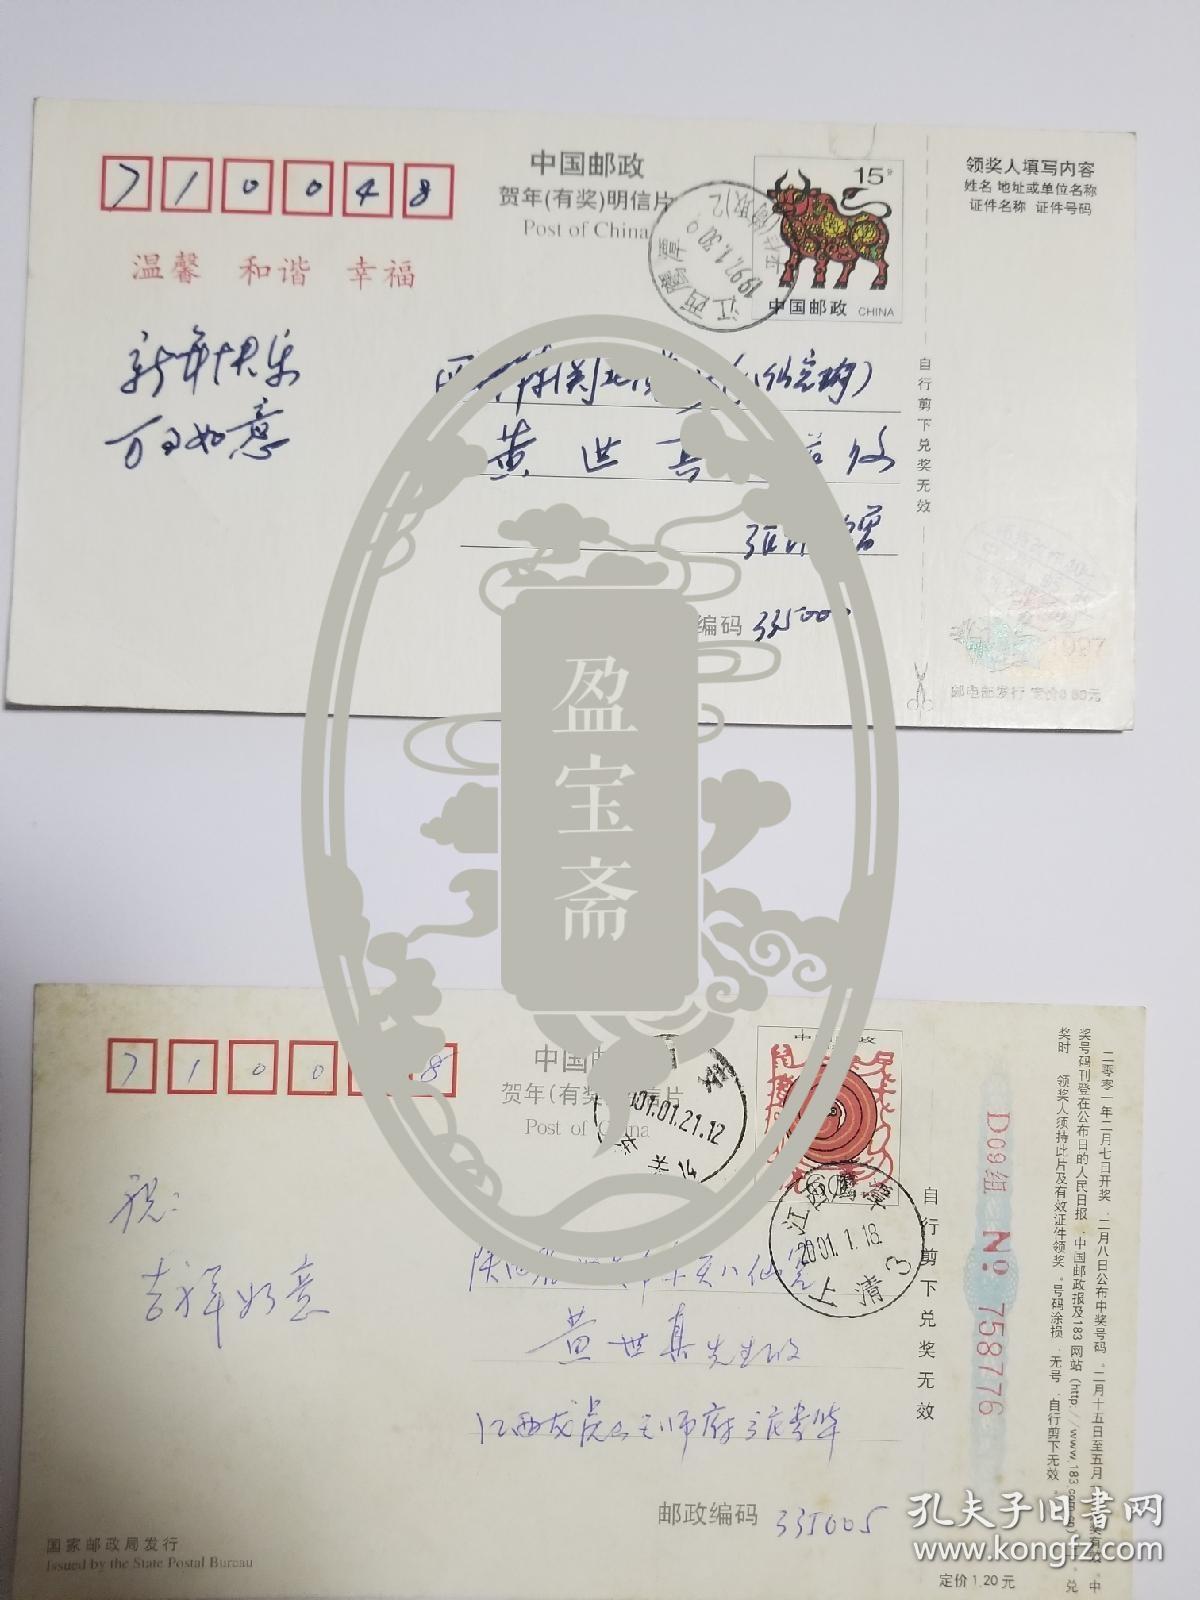 710048
中国邮政
贺年(有奖)明信片
Post of China
15分
中国邮政 CHINA
江西鹰潭
1997.1.30.9
领奖人填写内容
姓名 地址或单位名称
证件名称 证件号码
温馨 和谐 幸福
新年快乐
万事如意
黄世真
编码 335000
自行剪下兑奖无效
1997
邮电部发行 定价0.60元
盈宝斋
7100 8
中国邮
贺年(有奖 信片
Post of China
中国邮政
01.01.21.12
江西鹰潭
2001.1.18.
上清 3
祝:
吉祥如意
八仙宫
黄世真先生收
江西龙虎山天师府
邮政编码 335005
自行剪下兑奖无效
D09组 № 758776
二零零一年二月七日开奖,二月八日公布中奖号码。二月十五日至五月
奖号码刊登在公布日的人民日报、中国邮政报及183网站(http://www.183.com.cn)
奖时 领奖人须持此片及有效证件领奖。号码涂损、无号、自行剪下无效。
国家邮政局发行
Issued by the State Postal Bureau
定价1.20元
孔夫子旧书网
www.kongfz.com